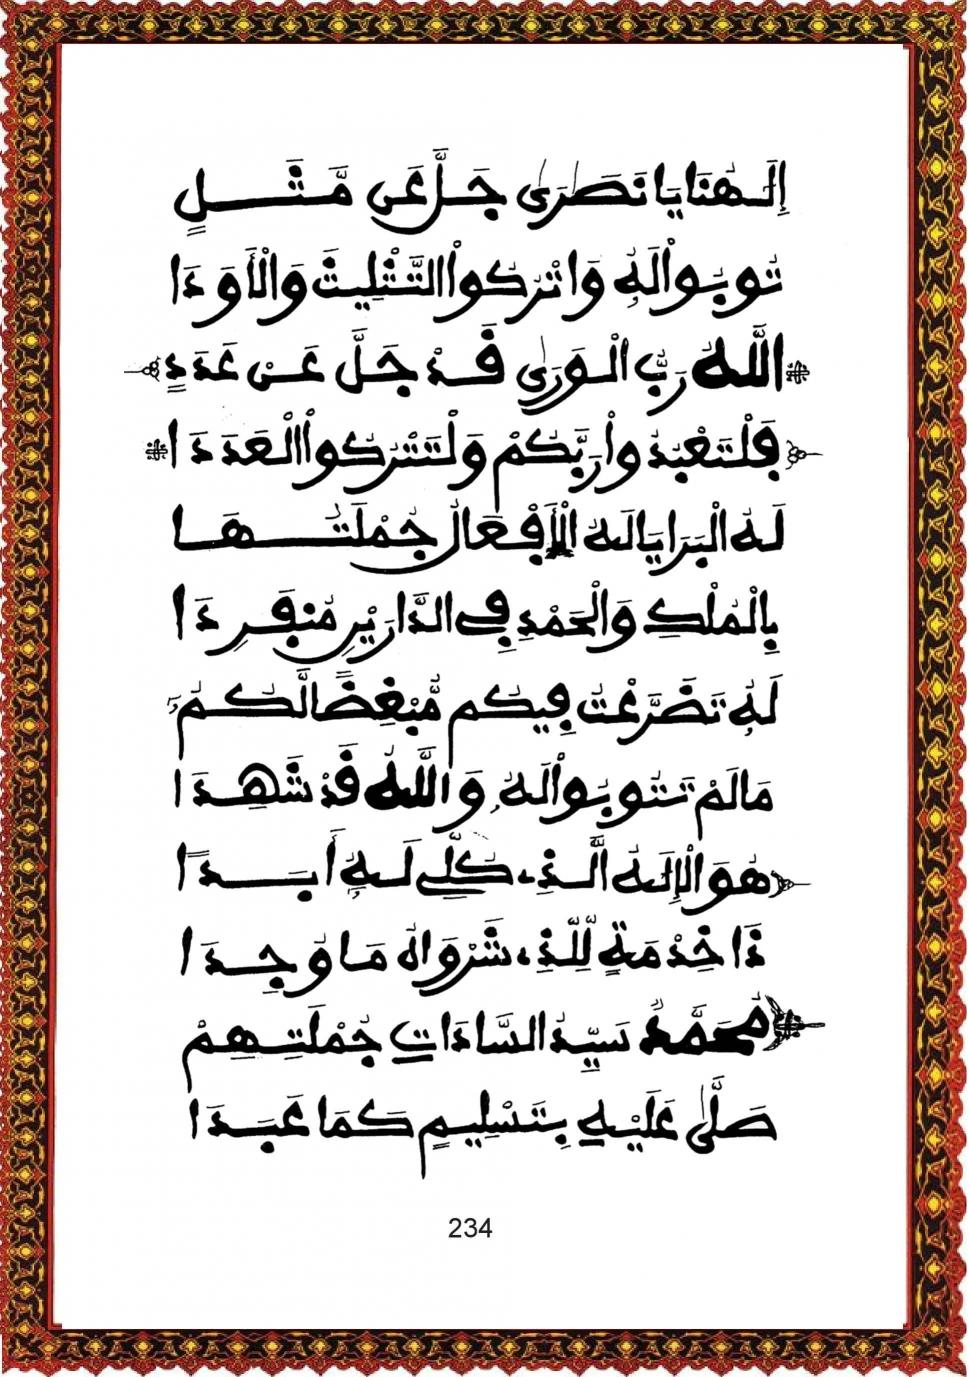 إِلَٰهُنَا يَا نَصَٰرَىٰ جَلَّ عَن مَّثَلٍ
تُوبُواْ لَهُ وَاتْرُكُواْ التَّثْلِيثَ وَالْأَوَدَا
اللَّهُ رَبُّ الْوَرَىٰ قَدْ جَلَّ عَنْ عَدَدٍ
فَلْتَعْبُدُواْ رَبَّكُمْ وَلْتَتْرُكُواْ الْعَدَدَا
لَهُ الْبَرَايَا لَهُ الْأَفْعَالُ جُمْلَتُهَا
بِالْمُلْكِ وَالْحَمْدِ فِي الدَّارَيْنِ مُنفَرِدَا
لَهُ تَضَرَّعْتُ فِيكُم مُّبْغِضًا لَّكُمُ
مَا لَمْ تَتُوبُواْ لَهُ وَاللَّهُ قَدْ شَهِدَا
هُوَ الْإِلَٰهُ الَّذِي كُلِّي لَهُ أَبَدًا
ذَا خِدْمَةٍ لِلَّذِي شَرْوَاهُ مَا وُجِدَا
مُحَمَّدٌ سَيِّدُ السَّادَاتِ جُمْلَتِهِمْ
صَلَّىٰ عَلَيْهِ بِتَسْلِيمٍ كَمَا عَبَدَا
234